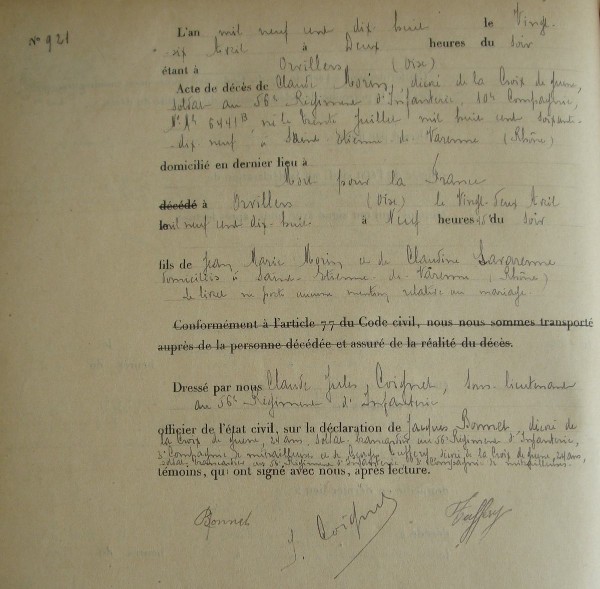 N° 921
L'an mil neuf cent dix huit le Vingt-
six Avril à Deux heures du Soir
étant à Orvillers (Oise)
Acte de décès de Claude Morin, décoré de la Croix de guerre,
soldat au 56e Régiment d'Infanterie, 10e Compagnie,
N° Mle 6441B né le Trente Juillet mil huit cent soixante-
dix neuf à Saint Etienne de Varenne (Rhône)
domicilié en dernier lieu à
Mort pour la France
décédé à Orvillers (Oise) le Vingt-deux Avril
mil neuf cent dix-huit à Neuf heures du Soir
fils de Jean Marie Morin et de Claudine
domiciliés à Saint-Etienne de Varenne (Rhône)
Le livret ne porte aucune mention relative au mariage.
Conformément à l'article 77 du Code civil, nous nous sommes transporté
auprès de la personne décédée et assuré de la réalité du décès.
Dressé par nous Claude Jules Coignet, Sous-lieutenant
au 56e Régiment d'Infanterie
officier de l'état civil, sur la déclaration de Jacques Bonnet, décoré de
la Croix de guerre, 24 ans, soldat brancardier au 56e Régiment d'Infanterie,
3e Compagnie de mitrailleuses et de décoré de la Croix de guerre, 24 ans,
soldat brancardier au 56e Régiment d'Infanterie, 3e Compagnie de mitrailleuses
témoins, qui ont signé avec nous, après lecture.
Bonnet
J. Coignet